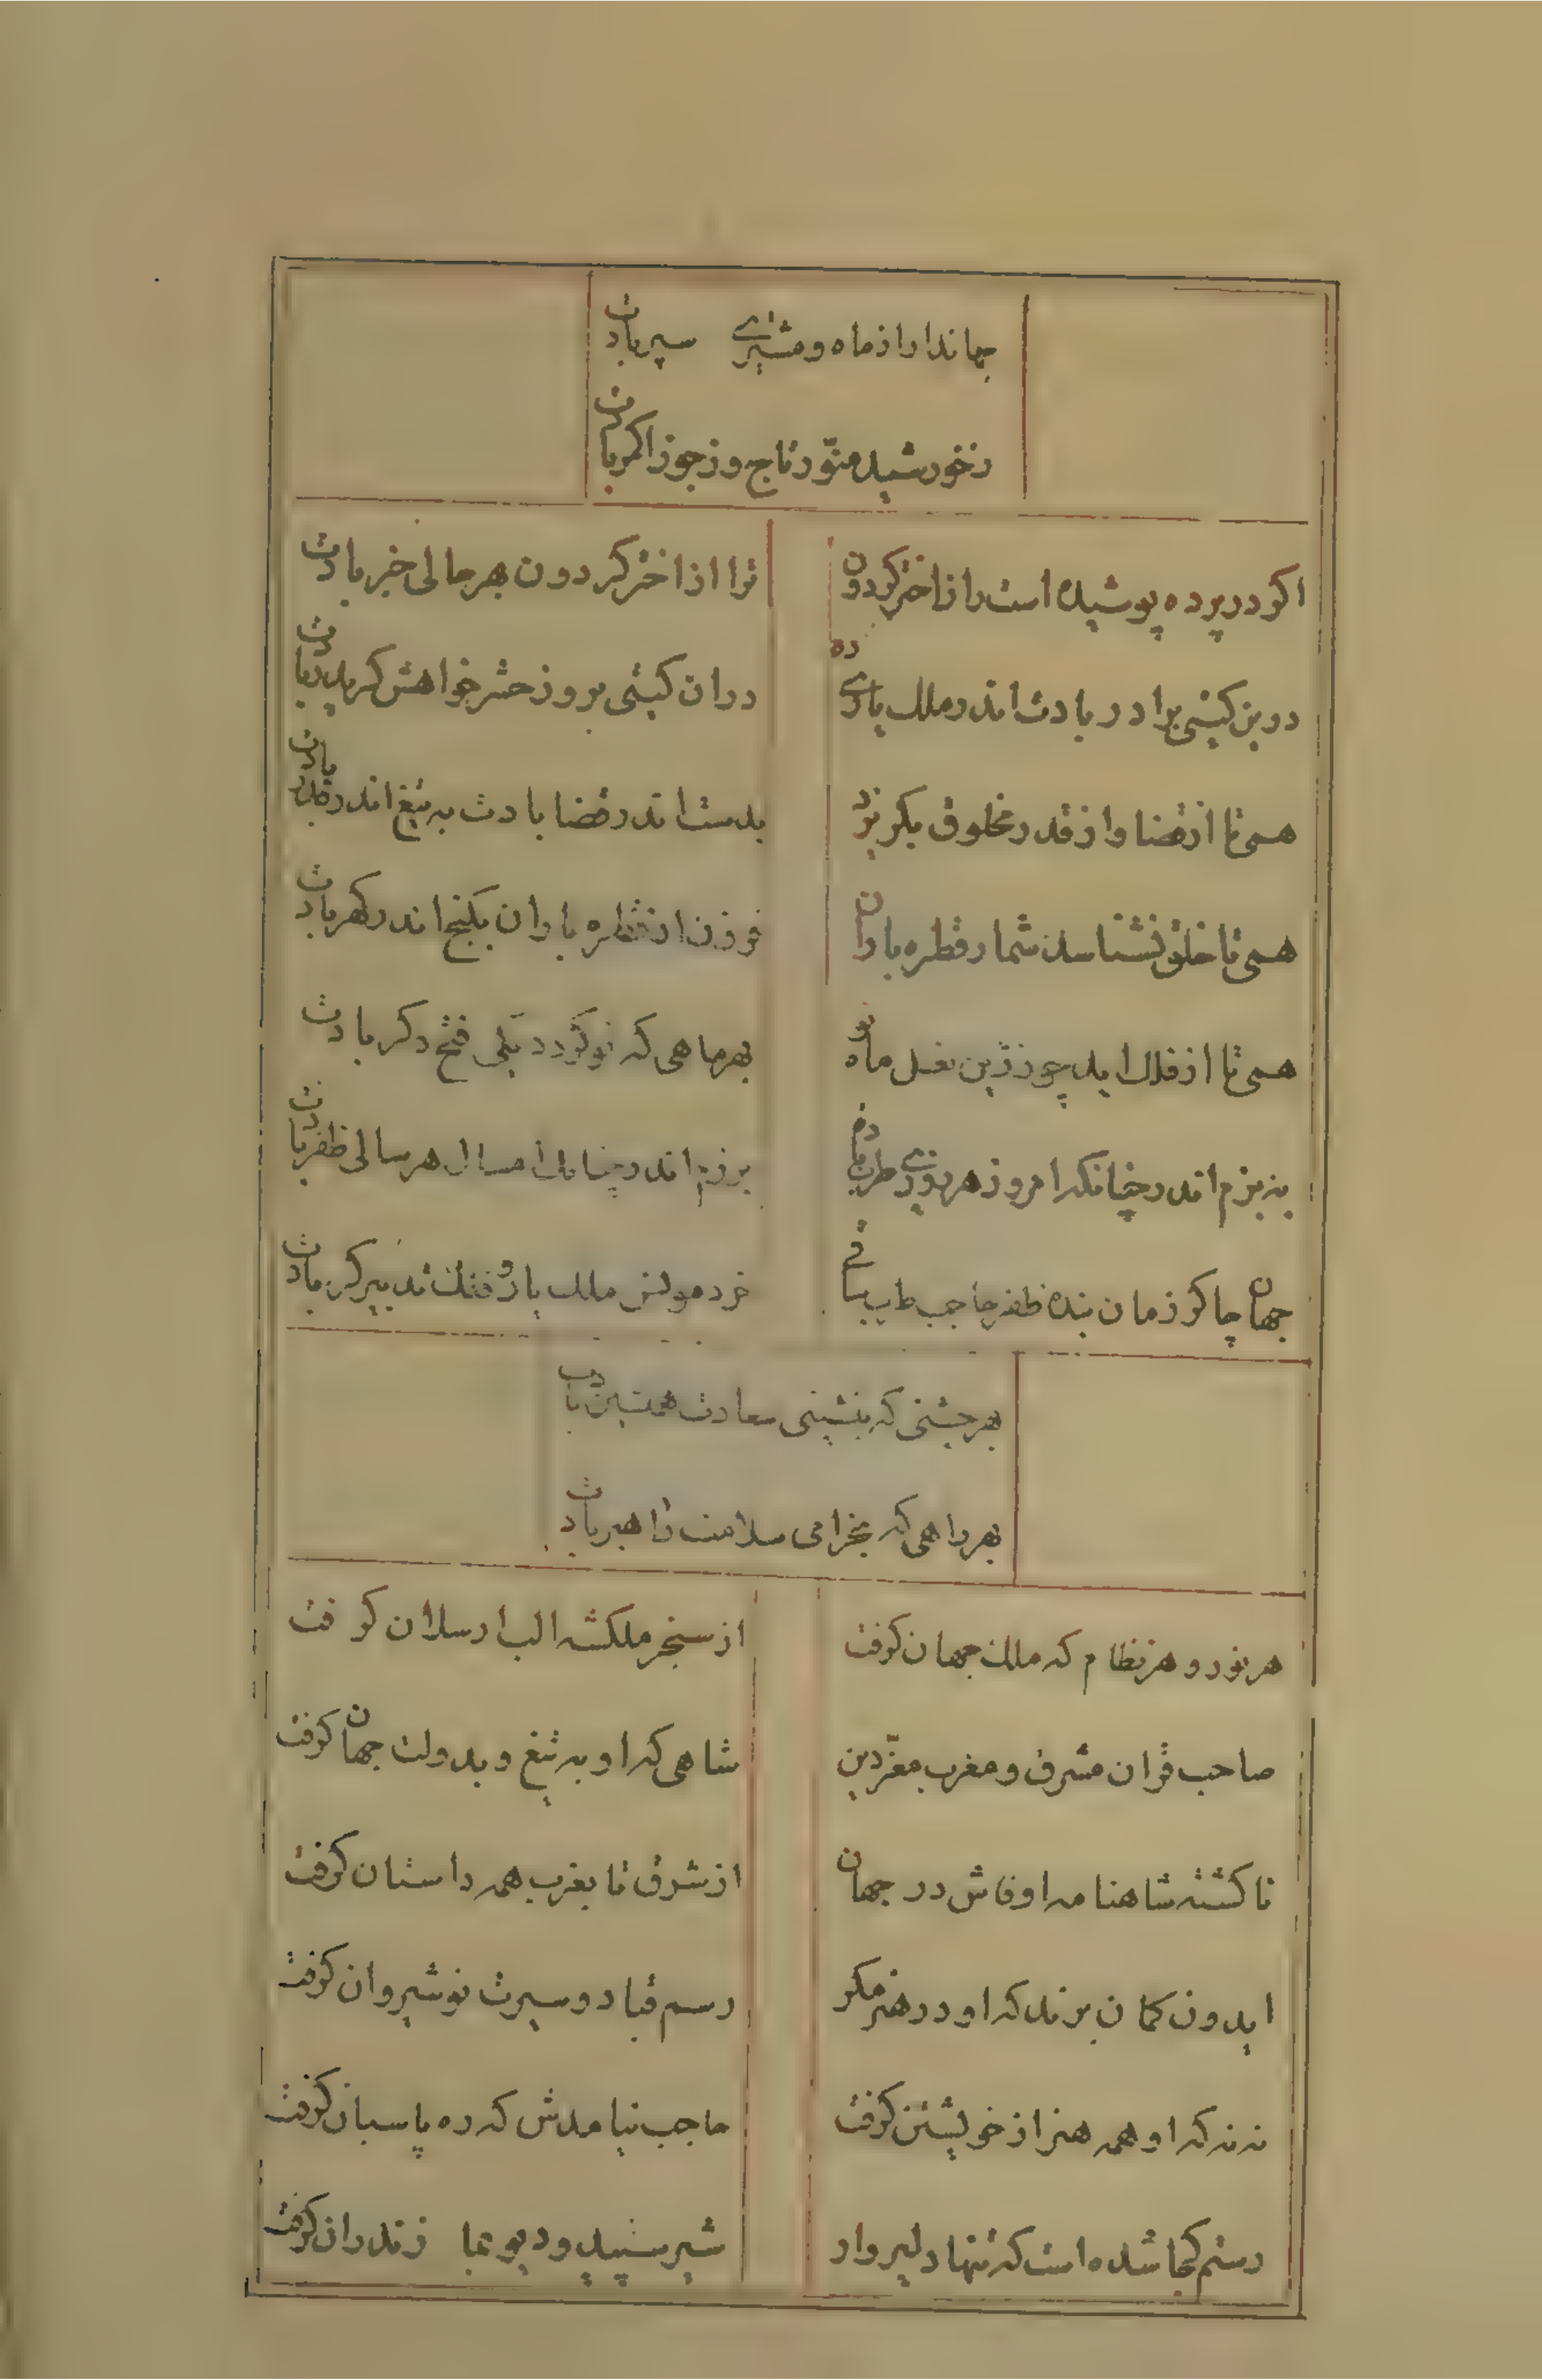 جهاندارا از ماه و مشتری سپر بادت
ز خورشید منوّر تاج و ز جوزا کمر بادت
اکر در پرده پوشیده است راز اختر کردون
ترا از اختر کردون بهر حالی خبر بادت
درین کیتی برادر بادت اندر ملک یاری ده
دران کیتی بروز حشر خواهش کر پدر بادت
همی تا از قضا و از قدر مخلوق نکریزد
بدست اندر قضا بادت به تیغ اندر قدر بادت
همی تا خلق نشناسد شمار قطره باران
فزون از قطره باران بکنج اندر کهر بادت
همی تا از فلک اید چو زرّین نعل ماه نو
بهر ماهی که نو کردد یکی فتح دکر بادت
به بزم اندر چنانکه امروز هر روزی طرب بادم
برزم اندر چنان امسال هر سالی ظفر بادت
جهان چاکر زمان بنده ظفر حاجب طرب ساقی
خرد مونس ملک یار و فلک تدبیر کر بادت
بهر جشنی که بنشینی سعادت همنشین بادت
بهر راهی که بخرامی سلامت راهبر بادت
هر نور و هر نظام که ملک جهان کرفت
از سنجر ملکشه الب ارسلان کرفت
صاحب قران مشرق و مغرب معزّ دین
شاهی که او به تیغ و بدولت جهان کرفت
تا کشته شاهنامه او فاش در جهان
از شرق تا بغرب همه داستان کرفت
ایدون کمان برند که او در هنر مکر
رسم قباد و سیرت نوشیروان کرفت
نه نه که او همه هنر از خویشتن کرفت
حاجب نیامدش که ره پاسبان کرفت
رستم کجا شده است که تنها دلیروار
شیر سپید و دیو بما زندران کرفت